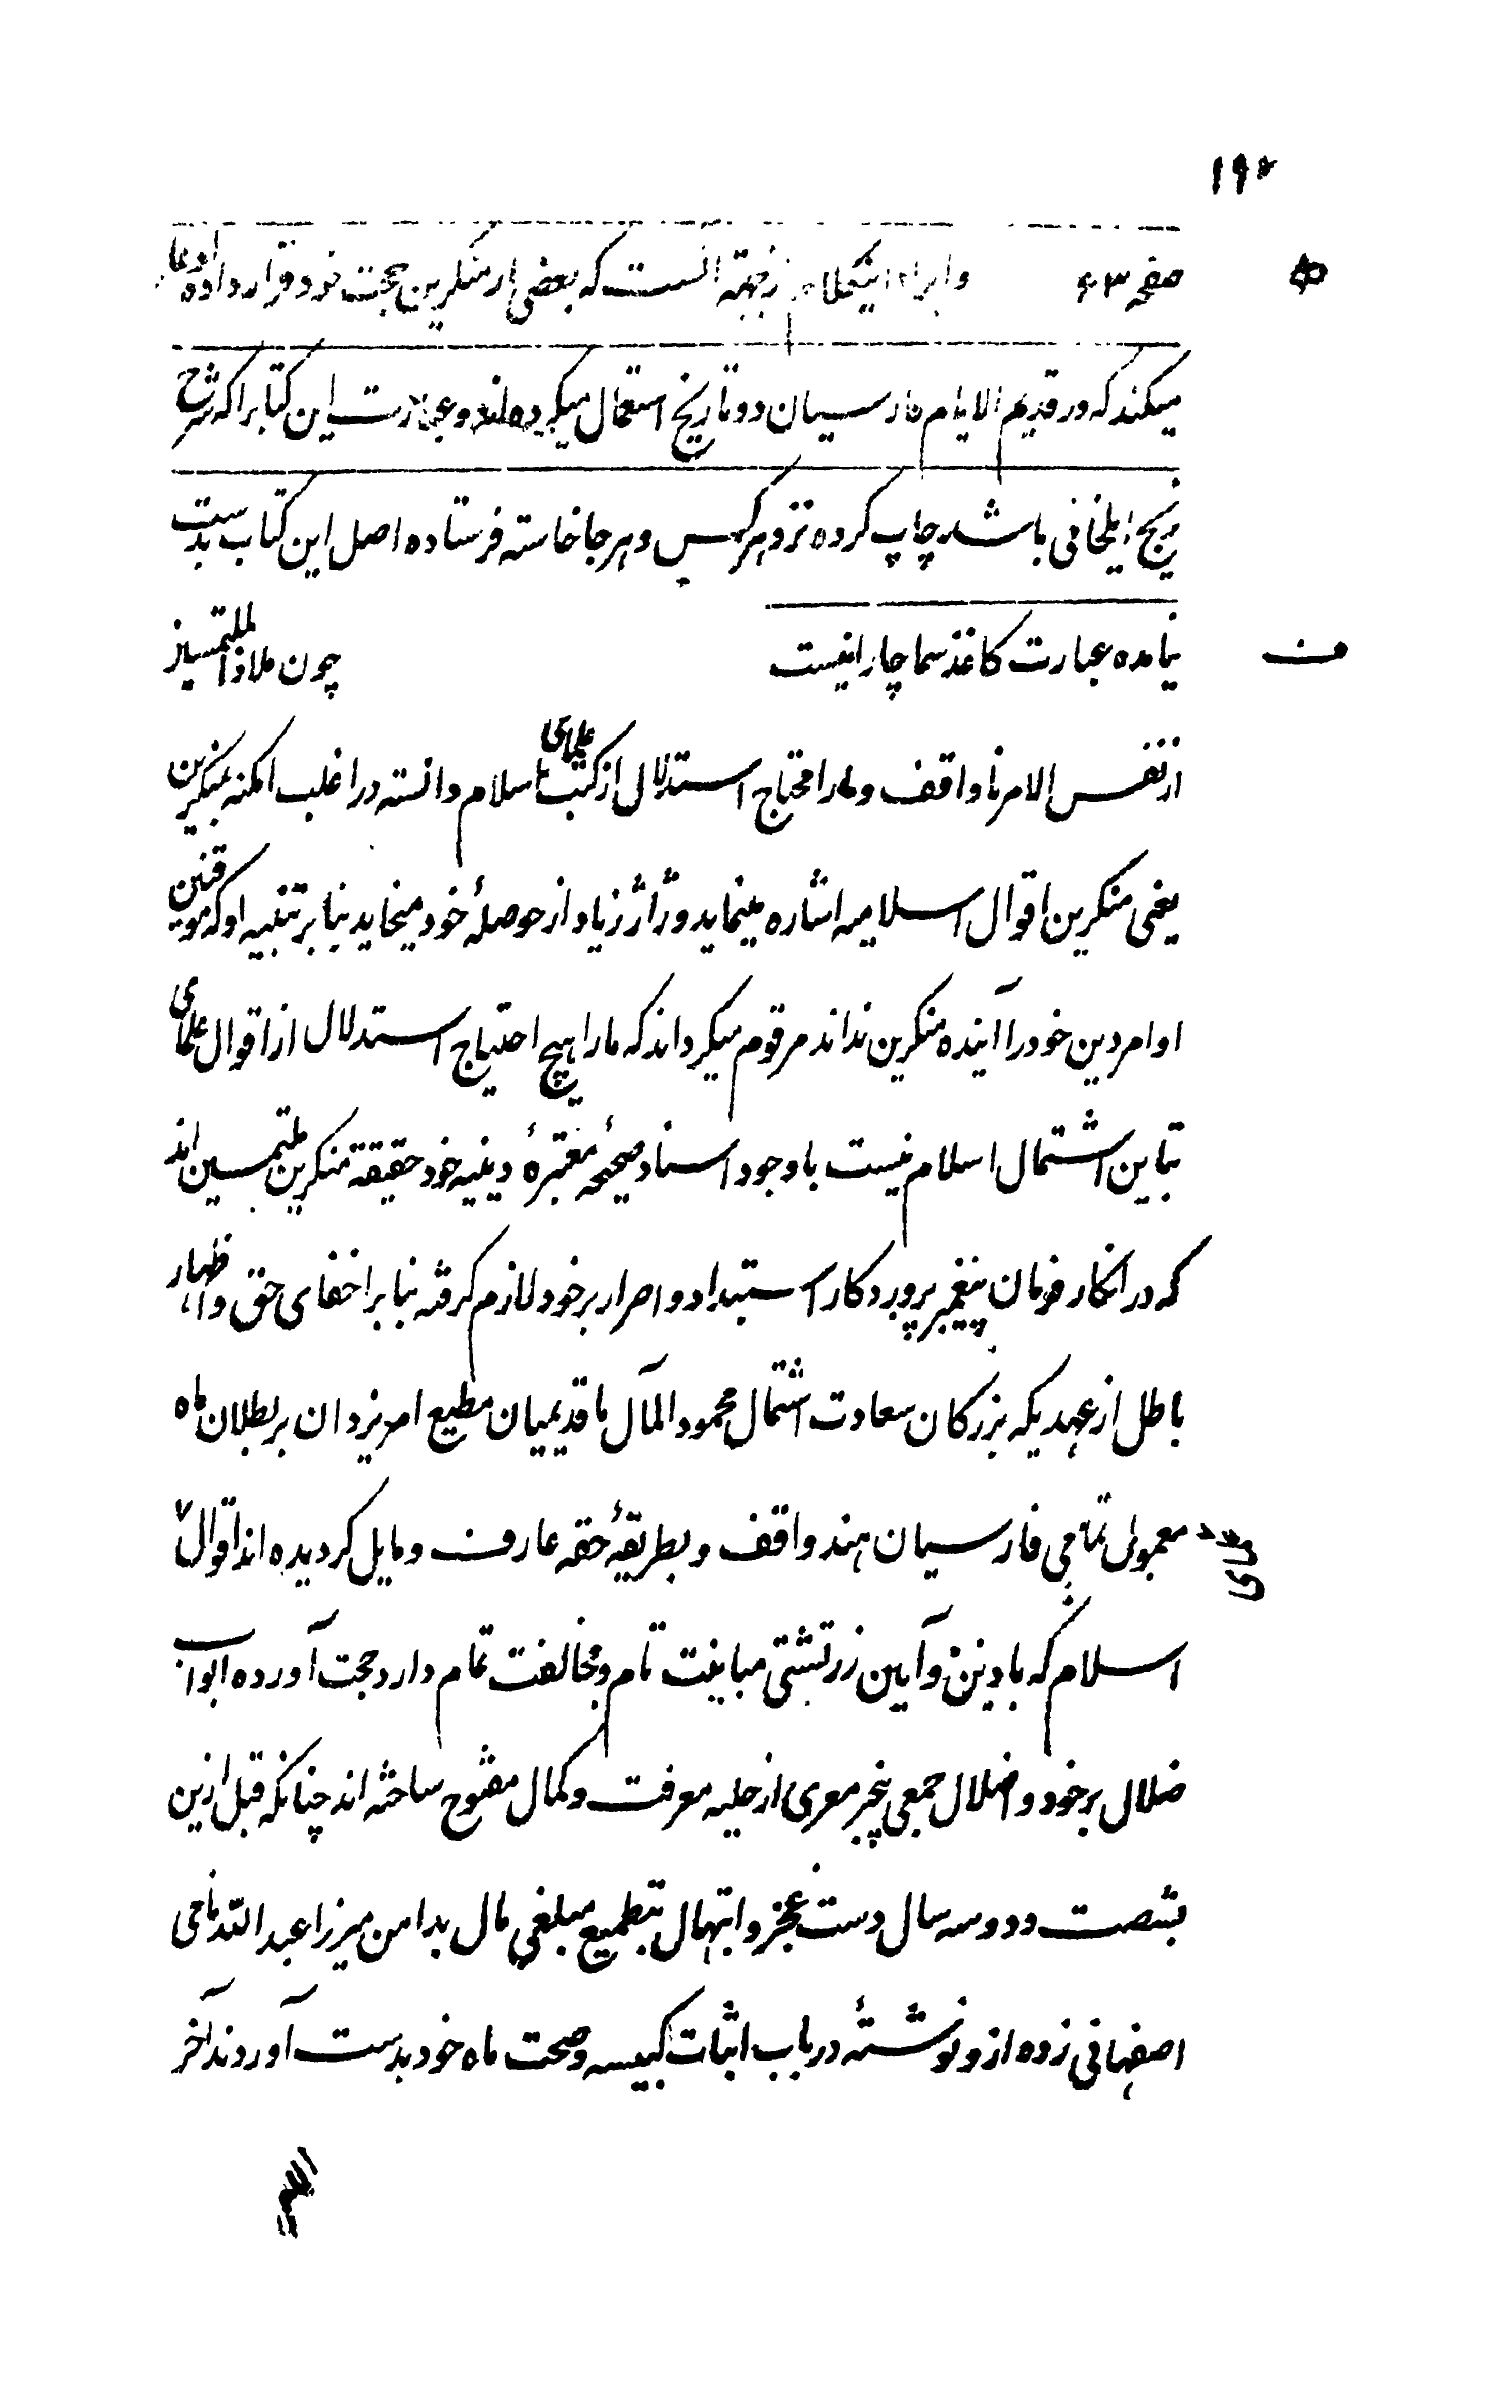 ۱۹۶
صفحه ۶۳ و ایراد اینکلام از جهته انست که بعضی از منکرین حجت خود قرار داده ادعا
میکند که در قدیم الایام فارسیان دو تاریخ استعمال میکرده‌اند و عبارت این کتابرا که شرح
زیج ایلخانی باشد چاپ کرده نزد هر کس و هر جا خاسته فرستاده اصل این کتاب بدست
نیامده عبارت کاغذ سماچار اینست چون ملاذ الملتمسین
از نفس الامر ناواقف و مارا محتاج استدلال از کتب علمای اسلام دانسته در اغلب امکنه بمنکرین
یعنی منکرین اقوال اسلامیه اشاره مینماید و ژاژ زیاد از حوصلهٔ خود میخاید بنابر تنبیه او که موقنین
اوامر دین خود را آینده منکرین نداند مرقوم میکرداند که مارا هیچ احتیاج استدلال از اقوال علمای
تباین اشتمال اسلام نیست باوجود اسناد صحیحهٔ معتبرهٔ دینیه خود حقیقة منکرین ملتمسین اند
که در انکار فرمان پیغمبر پروردکار استبداد و اصرار بر خود لازم کرفته بنابر اخفای حق و اظهار
باطل از عهدیکه بزرکان سعادت اشتمال محمود المآل ما قدیمیان مطیع امر یزدان بر بطلان ماه
معمولی تمامی فارسیان هند واقف و بطریقهٔ حقه عارف و مایل کردیده اند اقوال
اسلام که با دین و آیین زرتشتی مباینت تام و مخالفت تمام دارد حجت آورده ابواب
ضلال بر خود و اضلال جمعی بیخبر معری از حلیه معرفت و کمال مفتوح ساخته اند چنانکه قبل ازین
بشصت و دو سه سال دست عجز و ابتهال بتطمیع مبلغی مال بدامن میرزا عبد الله نامی
اصفهانی زده از و نوشتهٔ در باب اثبات کبیسه و صحت ماه خود بدست آوردند آخر